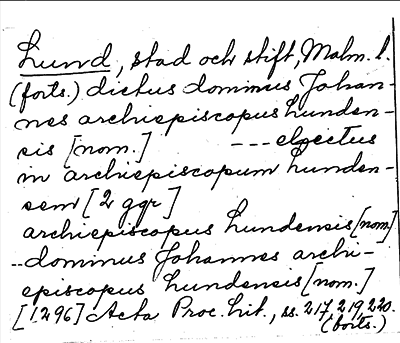 Lund, stad och stift, Malm. l.
(forts.) dictus dominus Johan-
nes archiepiscopus Lunden-
sis [nom.] --- electus
in archiepiscopum Lunden-
sem [2 ggr]
archiepiscopus Lundensis [nom.]
-- dominus Johannes archi-
episcopus Lundensis [nom.]
[1296] Acta Proc. Lit., ss. 217, 219, 220.
(forts.)